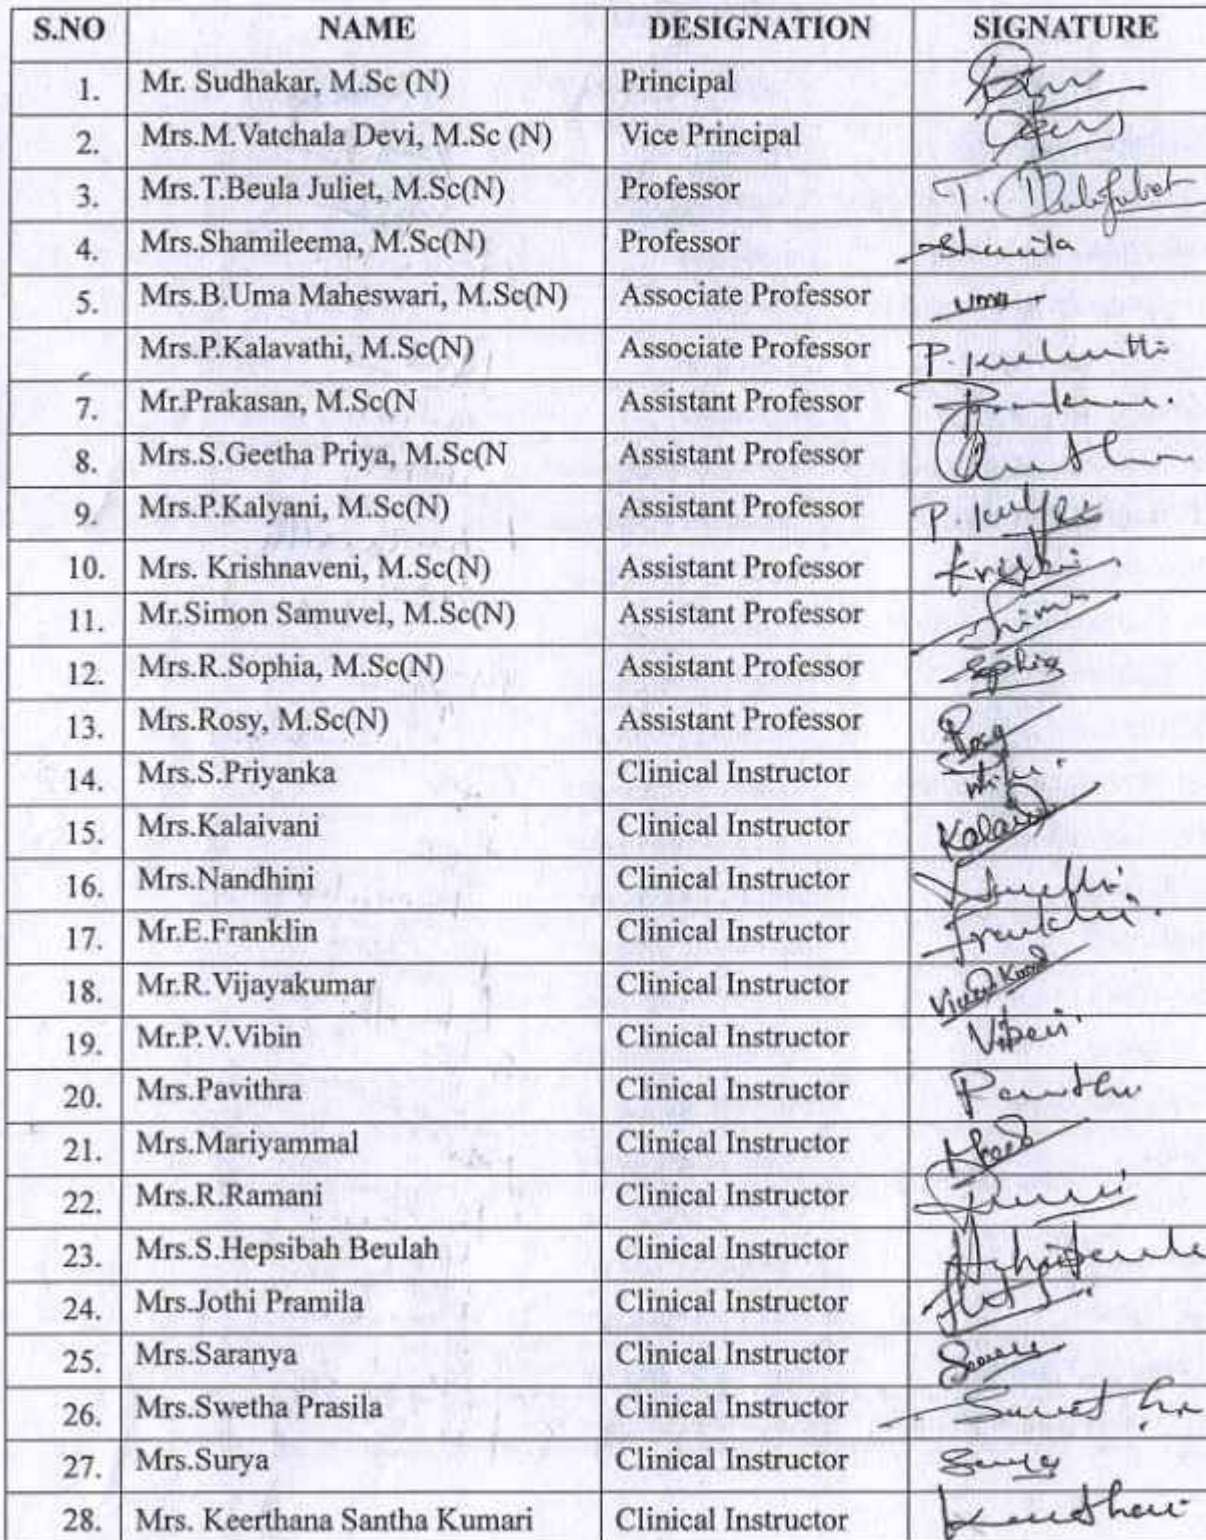 S.NO NAME DESIGNATION SIGNATURE
1. Mr. Sudhakar, M.Sc (N) Principal
2. Mrs.M.Vatchala Devi, M.Sc (N) Vice Principal
3. Mrs.T.Beula Juliet, M.Sc(N) Professor T.
4. Mrs.Shamileema, M.Sc(N) Professor
5. Mrs.B.Uma Maheswari, M.Sc(N) Associate Professor uma
Mrs.P.Kalavathi, M.Sc(N) Associate Professor P.
7. Mr.Prakasan, M.Sc(N Assistant Professor
8. Mrs.S.Geetha Priya, M.Sc(N Assistant Professor
9. Mrs.P.Kalyani, M.Sc(N) Assistant Professor P.
10. Mrs. Krishnaveni, M.Sc(N) Assistant Professor
11. Mr.Simon Samuvel, M.Sc(N) Assistant Professor
12. Mrs.R.Sophia, M.Sc(N) Assistant Professor Sophia
13. Mrs.Rosy, M.Sc(N) Assistant Professor
14. Mrs.S.Priyanka Clinical Instructor
15. Mrs.Kalaivani Clinical Instructor
16. Mrs.Nandhini Clinical Instructor
17. Mr.E.Franklin Clinical Instructor
18. Mr.R.Vijayakumar Clinical Instructor
19. Mr.P.V.Vibin Clinical Instructor
20. Mrs.Pavithra Clinical Instructor
21. Mrs.Mariyammal Clinical Instructor
22. Mrs.R.Ramani Clinical Instructor
23. Mrs.S.Hepsibah Beulah Clinical Instructor
24. Mrs.Jothi Pramila Clinical Instructor
25. Mrs.Saranya Clinical Instructor
26. Mrs.Swetha Prasila Clinical Instructor
27. Mrs.Surya Clinical Instructor
28. Mrs. Keerthana Santha Kumari Clinical Instructor